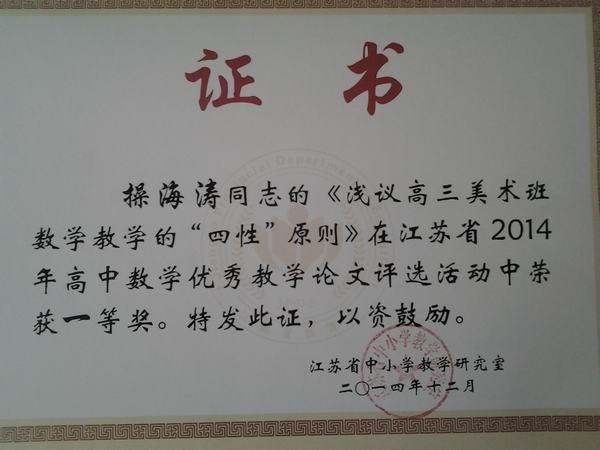 证书
操海涛同志的《浅议高三美术班
数学教学的“四性”原则》在江苏省2014
年高中数学优秀教学论文评选活动中荣
获一等奖。特发此证，以资鼓励。
江苏省中小学教学研究室
二〇一四年十二月